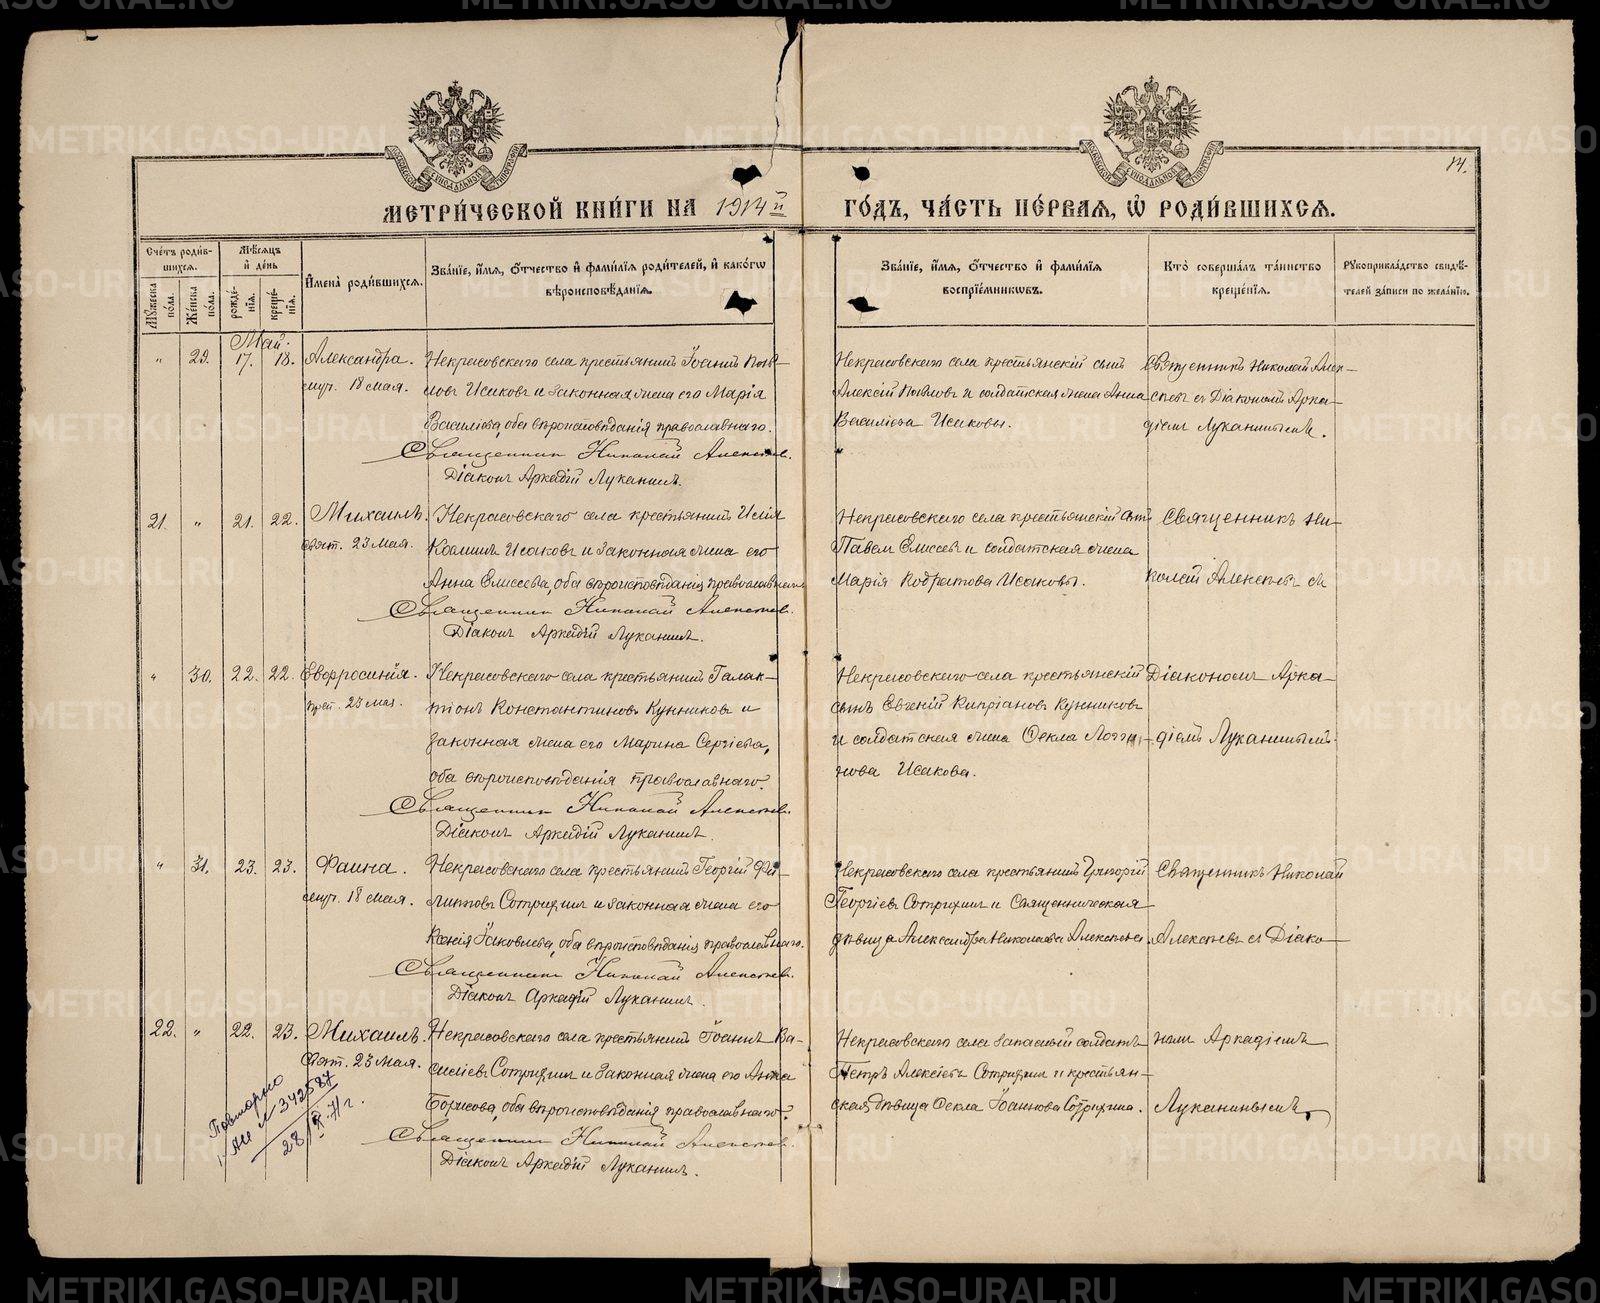 14.
МЕТРИ́ЧЕСКОЙ КНИ́ГИ НА 1914й ГО́ДЪ, ЧА́СТЬ ПЕ́РВАЯ, Ѡ РОДИ́ВШИХСЯ.
Счётъ роди́вшихся.
Му́жеска по́ла.
Же́нска по́ла.
Мѣ́сяцъ и де́нь
рожде́нія.
креще́нія.
Имена̀ роди́вшихся.
Зва́ніе, и́мя, о́тчество и фами́лія роди́телей, и како́гѡ вѣроисповѣ́данія.
Зва́ніе, и́мя, о́тчество и фами́лія воспріе́мниковъ.
Кто̀ соверша́лъ та́инство креще́нія.
Рукоприкла́дство свидѣ́телей за́писи по жела́нію.
Май.
„ 29. 17. 18. Александра.
муч. 18 мая.
Некрасовскаго села крестьянинъ Іоаннъ Пав-
ловъ Исаковъ и законная жена его Марія
Васильева, оба вѣроисповѣданія православнаго.
Священникъ Николай Алексѣевъ.
Діаконъ Аркадій Луканинъ.
Некрасовскаго села крестьянскій сынъ
Алексій Павловъ и солдатская жена Анна
Васильева Исаковы.
Священникъ Николай Алек-
сѣевъ съ Діакономъ Арка-
діемъ Луканинымъ.
21. „ 21. 22. Михаилъ.
Свят. 23 мая.
Некрасовскаго села крестьянинъ Илія
Козминъ Исаковъ и законная жена его
Анна Елисеева, оба вѣроисповѣданія православнаго
Священникъ Николай Алексѣевъ.
Діаконъ Аркадій Луканинъ.
Некрасовскаго села крестьянскій сынъ
Павелъ Елисеевъ и солдатская жена
Марія Кодратова Исаковы.
Священникъ Ни-
колай Алексѣевъ съ
„ 30. 22. 22. Евфросинія.
преп. 23 мая.
Некрасовскаго села крестьянинъ Галак-
тіонъ Константиновъ Кунниковъ и
законная жена его Марина Сергіева,
оба вѣроисповѣданія православнаго.
Священникъ Николай Алексѣевъ.
Діаконъ Аркадій Луканинъ.
Некрасовскаго села крестьянскій
сынъ Евгеній Кипріановъ Кунниковъ
и солдатская жена Ѳекла Логги-
нова Исакова.
Діакономъ Арка-
діемъ Луканинымъ.
„ 31. 23. 23. Фаина.
муч. 18 мая.
Некрасовскаго села крестьянинъ Георгій Фи-
липповъ Сотрихинъ и законная жена его
Ксенія Іаковлева, оба вѣроисповѣданія православнаго.
Священникъ Николай Алексѣевъ.
Діаконъ Аркадій Луканинъ.
Некрасовскаго села крестьянинъ Григорій
Георгіевъ Сотрихинъ и Священническая
дѣвица Александра Николаева Алексѣева.
Священникъ Николай
Алексѣевъ съ Діако-
22. „ 22. 23. Михаилъ.
Свят. 23 мая.
Некрасовскаго села крестьянинъ Іоаннъ Ва-
силіевъ Сотрихинъ и законная жена его Анна
Борисова, оба вѣроисповѣданія православнаго.
Священникъ Николай Алексѣевъ.
Діаконъ Аркадій Луканинъ.
Некрасовскаго села запасный солдатъ
Петръ Алексіевъ Сотрихинъ и крестьян-
ская дѣвица Ѳекла Іоаннова Сотрихина.
номъ Аркадіемъ
Луканинымъ.
Повторно
АИ № 342587
28/X.71 г.
METRIKI.GASO-URAL.RU